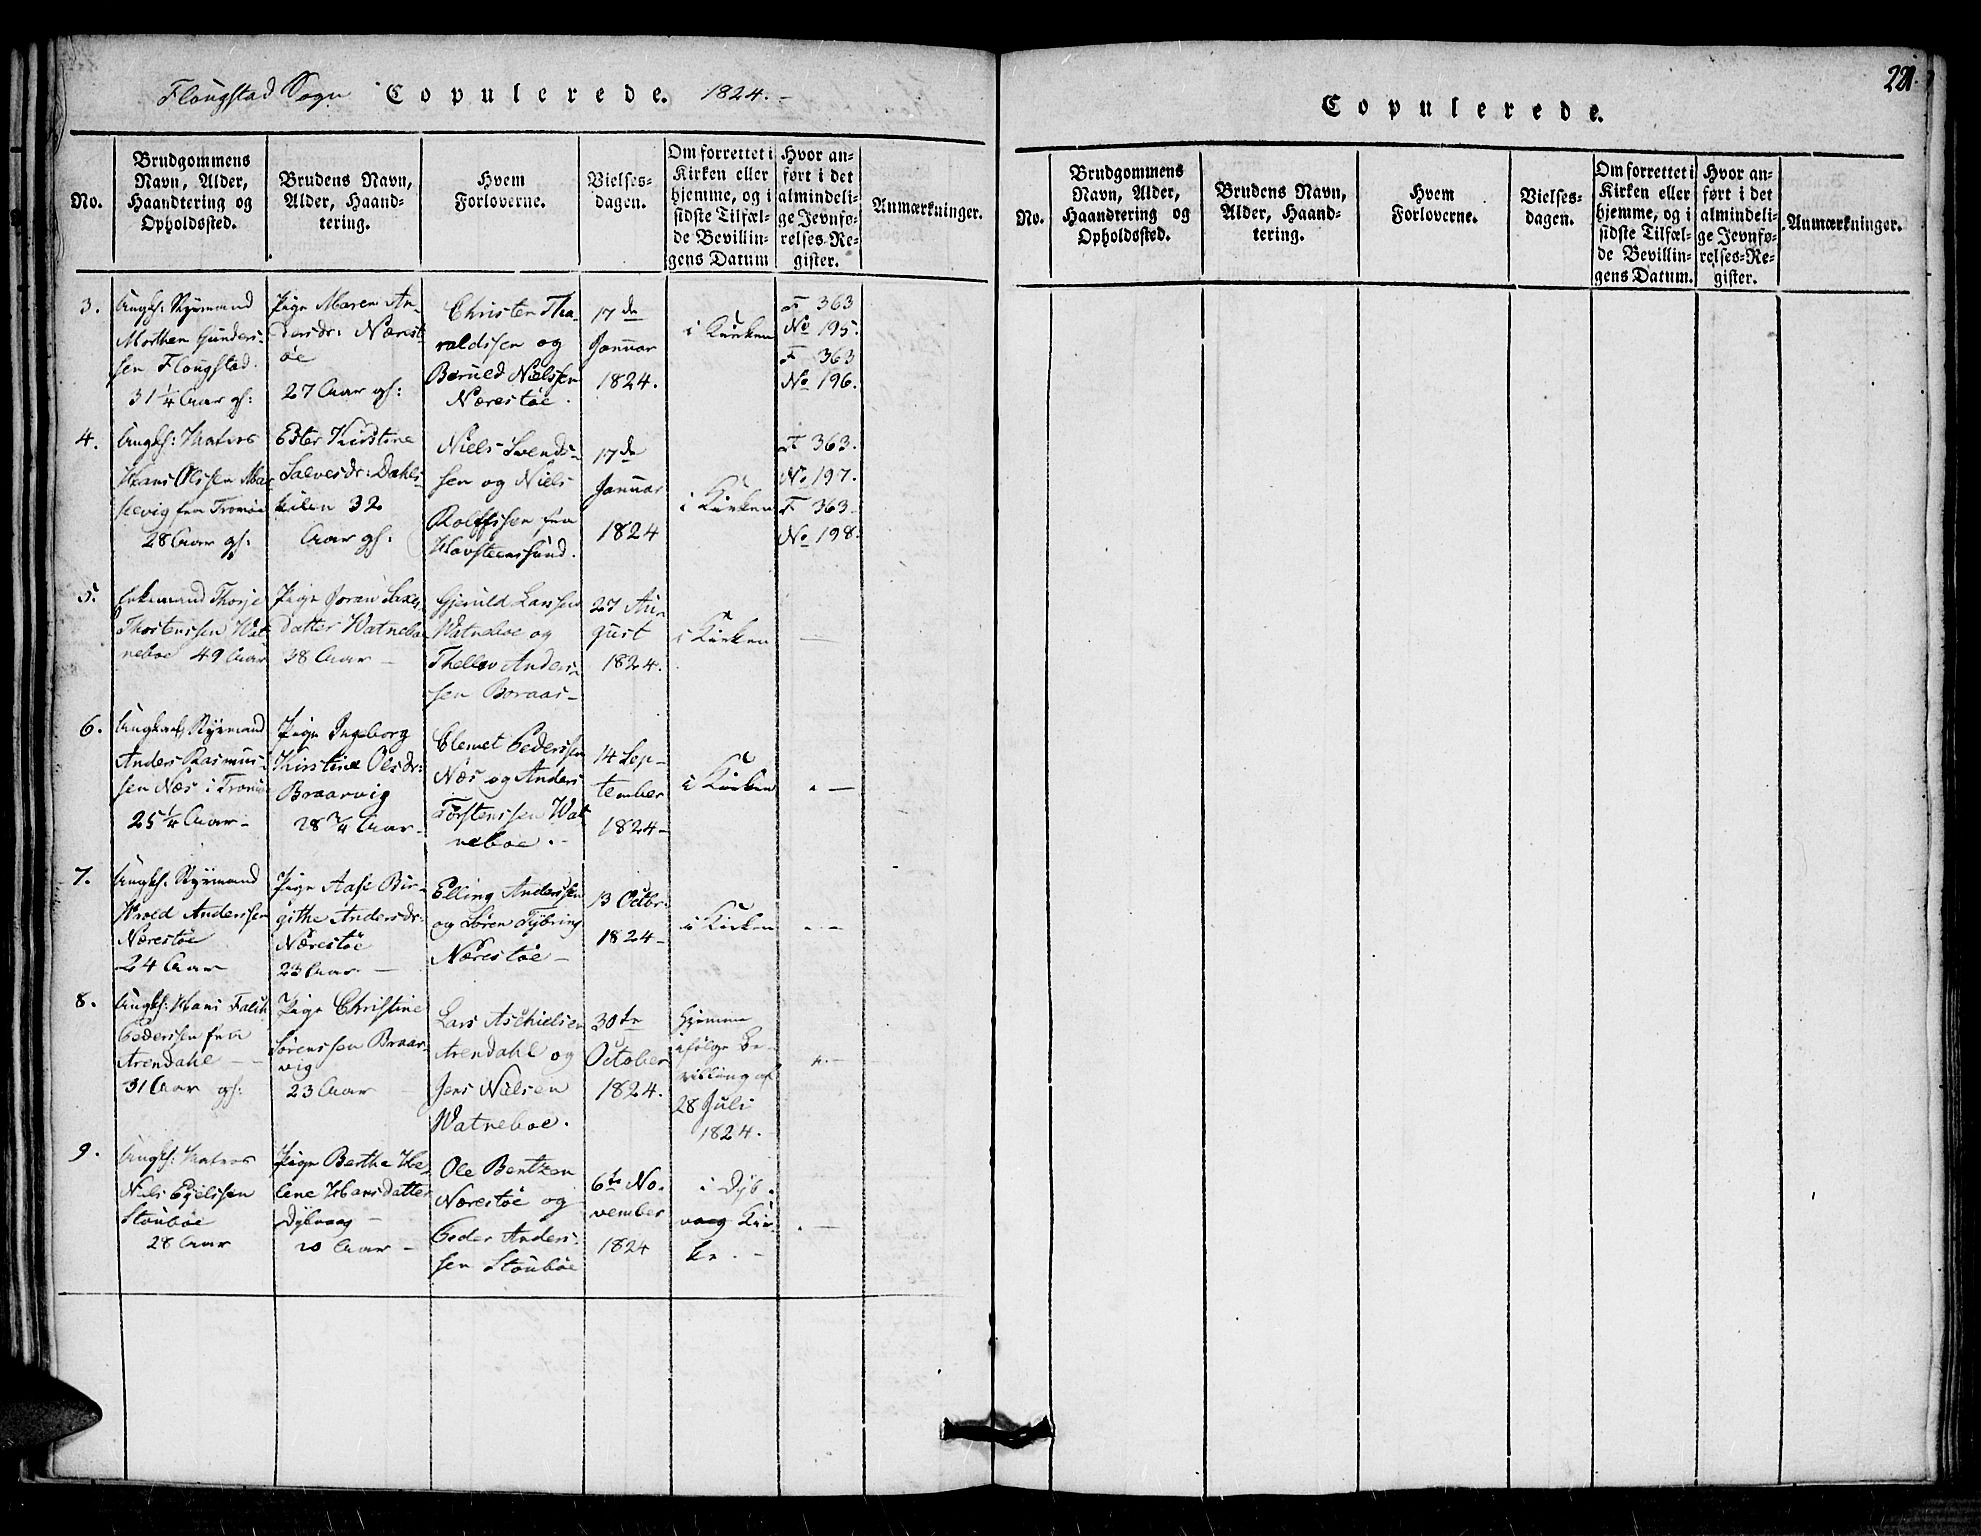 Flougstad Sogn Copulerede. 1824.
No.
Brudgommens
Navn, Alder,
Haandtering og
Opholdssted.
Brudens Navn,
Alder, Haand-
tering.
Hvem
Forloverne.
Vielses-
dagen.
Om forrettet i
Kirken eller
hjemme, og i
sidste Tilfæl-
de Bevillin-
gens Datum
Hvor an-
ført i det
almindeli-
ge Jevnfø-
relses-Re-
gister.
Anmærkninger.
3.
Ungk: Styrmand
Morthen Gunders-
sen Flougstad.
31 1/4 Aar gl:
Pige Maren An-
dersdr: Nærest-
öe
27 Aar gl:
Christen Tha-
raldssen og
Beruld Nielssen
Nærestöe.
17de
Januar
1824.
i Kirken
F 363
No 195.
F 363
No 196.
4.
Ungk: Matros
Hans Olssen Mar-
sevig fra Tromöe
28 Aar gl:
Ester Kirstine
Salvesdr: Dahls-
kilen 32
Aar gl:
Niels Svends-
sen og Niels
Rolffssen fra
Havsteensund.
17de
Januar
1824
i Kirken
F 363.
No 197.
F 363.
No 198.
5.
Enkemand Thorje
Thostenssen Wat-
neboe 49 Aar
Pige Joran
datter Watneboe
38 Aar —
Gjeruld Larssen
Watneboe og
Thellov Anders-
sen Boraas —
27 Au-
gust
1824.
i Kirken
—
6.
Ungkarl Styrmand
Anders Rasmus-
sen Næs i Tromöe
25 1/4 Aar —
Pige Ingeborg
Kirstine Olsdr:
Braarvig
28 3/4 Aar —
Clemet Pederssen
Næs og Anders
Torstenssen Wat-
neboe. —
14 Sep-
tember
1824 —
i Kirken
. —
7.
Ungk. Styrmand
Harold Anderssen
Nærestöe
24 Aar
Pige Aase Bir-
githe Andersdr:
Nærestöe
23 Aar —
Elling Anderssen
og Sören Tybring
Nærestöe —
13 Octbr.
1824 —
i Kirken
. —
8.
Ungk: Hans Falck
Pederssen fra
Arendahl —
31 Aar gl:
Pige Christine
Sörenssen Braar-
vig
23 Aar —
Lars Aschielsen
Arendahl og
Jens Nielsen
Watneboe.
30te
October
1824.
Hjemme
ifölge Be-
villing af
28 Juli
1824. —
. —
9.
Ungk: Matros
Niels Ejelssen
Stoubøe
28 Aar
Pige Berthe He-
lene Hansdatter
Dybvaag —
20 Aar —
Ole Bentzen
Nærestöe og
Peder Anders-
sen Stouböe
6te No-
vember
1824
i Dyb-
vaag Kir-
ke. —
. —
221.
Copulerede.
No.
Brudgommens
Navn, Alder,
Haandtering og
Opholdssted.
Brudens Navn,
Alder, Haand-
tering.
Hvem
Forloverne.
Vielses-
dagen.
Om forrettet i
Kirken eller
hjemme, og i
sidste Tilfæl-
de Bevillin-
gens Datum.
Hvor an-
ført i det
almindeli-
ge Jevnfø-
relses-Re-
gister.
Anmærkninger.